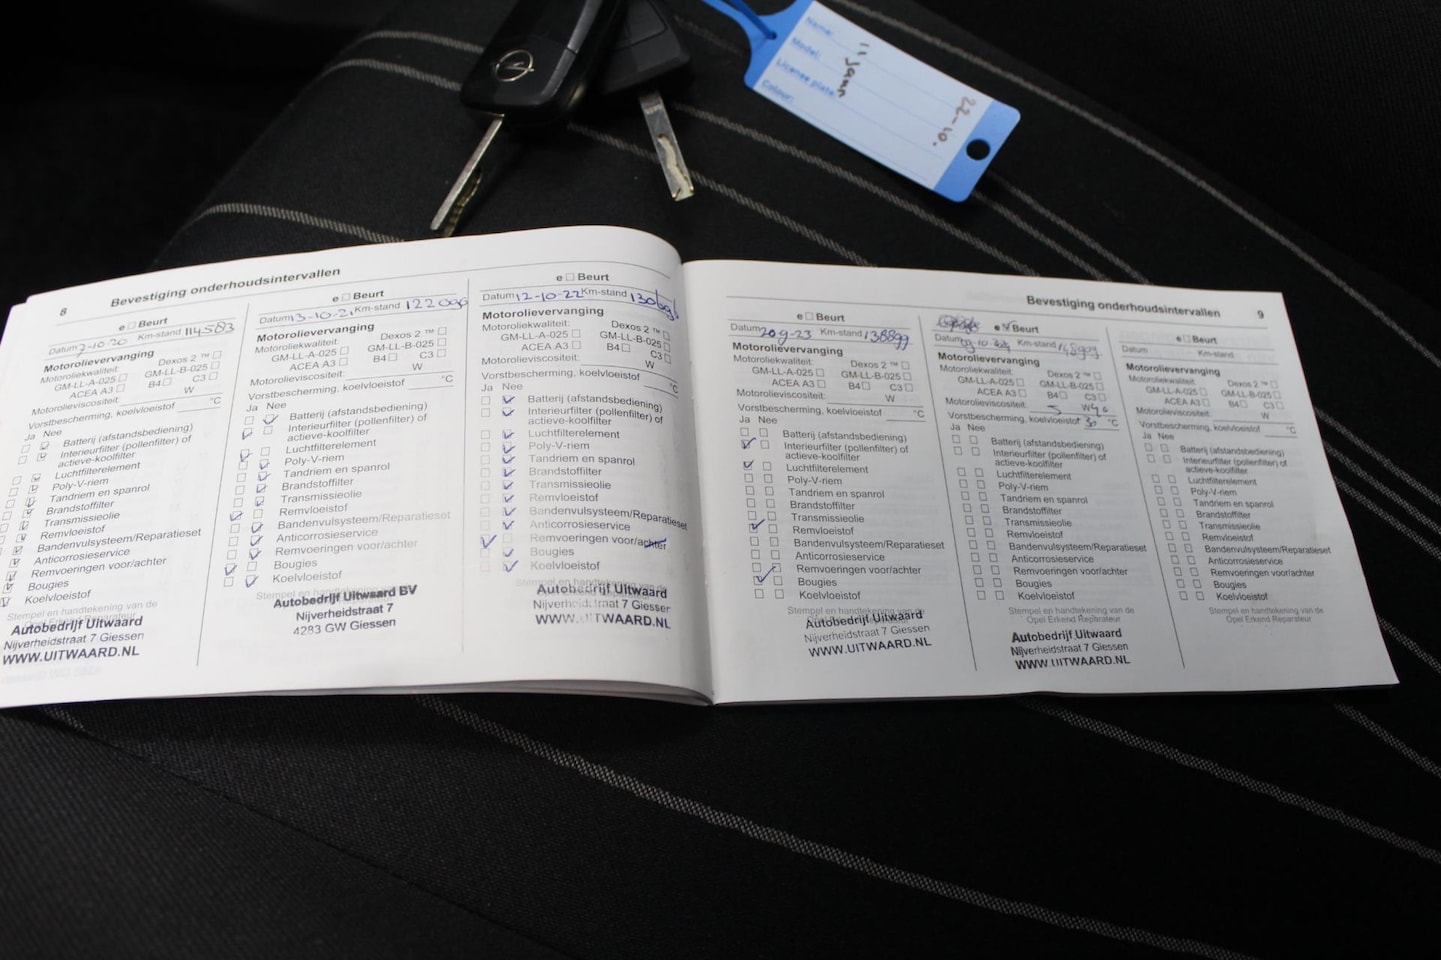 Name:
Model:
License plate:
Colour:
22-10.
8
Bevestiging onderhoudsintervallen
e □ Beurt
Datum 7-10-20 Km-stand 114583
Motorolievervanging
Motoroliekwaliteit: Dexos 2 ™ □
GM-LL-A-025 □ GM-LL-B-025 □
ACEA A3 □ B4 □ C3 □
Motorolieviscositeit: W
Vorstbescherming, koelvloeistof °C
Ja Nee
Batterij (afstandsbediening)
Interieurfilter (pollenfilter) of
actieve-koolfilter
Luchtfilterelement
Poly-V-riem
Tandriem en spanrol
Brandstoffilter
Transmissieolie
Remvloeistof
Bandenvulsysteem/Reparatieset
Anticorrosieservice
Remvoeringen voor/achter
Bougies
Koelvloeistof
Stempel en handtekening van de
Autobedrijf Uitwaard
Nijverheidstraat 7 Giessen
WWW.UITWAARD.NL
e □ Beurt
Datum 13-10-21 Km-stand 122096
Motorolievervanging
Motoroliekwaliteit: Dexos 2 ™ □
GM-LL-A-025 □ GM-LL-B-025 □
ACEA A3 □ B4 □ C3 □
Motorolieviscositeit: W
Vorstbescherming, koelvloeistof °C
Ja Nee
Batterij (afstandsbediening)
Interieurfilter (pollenfilter) of
actieve-koolfilter
Luchtfilterelement
Poly-V-riem
Tandriem en spanrol
Brandstoffilter
Transmissieolie
Remvloeistof
Bandenvulsysteem/Reparatieset
Anticorrosieservice
Remvoeringen voor/achter
Bougies
Koelvloeistof
Stempel en handtekening van de
Autobedrijf Uitwaard BV
Nijverheidstraat 7
4283 GW Giessen
e □ Beurt
Datum 12-10-22 Km-stand
Motorolievervanging
Motoroliekwaliteit: Dexos 2 ™ □
GM-LL-A-025 □ GM-LL-B-025 □
ACEA A3 □ B4 □ C3 □
Motorolieviscositeit: W
Vorstbescherming, koelvloeistof °C
Ja Nee
Batterij (afstandsbediening)
Interieurfilter (pollenfilter) of
actieve-koolfilter
Luchtfilterelement
Poly-V-riem
Tandriem en spanrol
Brandstoffilter
Transmissieolie
Remvloeistof
Bandenvulsysteem/Reparatieset
Anticorrosieservice
Remvoeringen voor/achter
Bougies
Koelvloeistof
Stempel en handtekening van de
Autobedrijf Uitwaard
Nijverheidstraat 7 Giessen
WWW.UITWAARD.NL
Bevestiging onderhoudsintervallen 9
e □ Beurt
Datum 20 9-23 Km-stand 138899
Motorolievervanging
Motoroliekwaliteit: Dexos 2 ™ □
GM-LL-A-025 □ GM-LL-B-025 □
ACEA A3 □ B4 □ C3 □
Motorolieviscositeit: W
Vorstbescherming, koelvloeistof °C
Ja Nee
Batterij (afstandsbediening)
Interieurfilter (pollenfilter) of
actieve-koolfilter
Luchtfilterelement
Poly-V-riem
Tandriem en spanrol
Brandstoffilter
Transmissieolie
Remvloeistof
Bandenvulsysteem/Reparatieset
Anticorrosieservice
Remvoeringen voor/achter
Bougies
Koelvloeistof
Stempel en handtekening van de
Autobedrijf Uitwaard
Nijverheidstraat 7 Giessen
WWW.UITWAARD.NL
e Beurt
Datum Km-stand
Motorolievervanging
Motoroliekwaliteit: Dexos 2 ™ □
GM-LL-A-025 □ GM-LL-B-025 □
ACEA A3 □ B4 □ C3 □
Motorolieviscositeit: 5 W 40
Vorstbescherming, koelvloeistof 30 °C
Ja Nee
Batterij (afstandsbediening)
Interieurfilter (pollenfilter) of
actieve-koolfilter
Luchtfilterelement
Poly-V-riem
Tandriem en spanrol
Brandstoffilter
Transmissieolie
Remvloeistof
Bandenvulsysteem/Reparatieset
Anticorrosieservice
Remvoeringen voor/achter
Bougies
Koelvloeistof
Stempel en handtekening van de
Opel Erkend Reparateur
Autobedrijf Uitwaard
Nijverheidstraat 7 Giessen
WWW.UITWAARD.NL
e □ Beurt
Datum Km-stand
Motorolievervanging
Motoroliekwaliteit: Dexos 2 ™ □
GM-LL-A-025 □ GM-LL-B-025 □
ACEA A3 □ B4 □ C3 □
Motorolieviscositeit: W
Vorstbescherming, koelvloeistof °C
Ja Nee
Batterij (afstandsbediening)
Interieurfilter (pollenfilter) of
actieve-koolfilter
Luchtfilterelement
Poly-V-riem
Tandriem en spanrol
Brandstoffilter
Transmissieolie
Remvloeistof
Bandenvulsysteem/Reparatieset
Anticorrosieservice
Remvoeringen voor/achter
Bougies
Koelvloeistof
Stempel en handtekening van de
Opel Erkend Reparateur